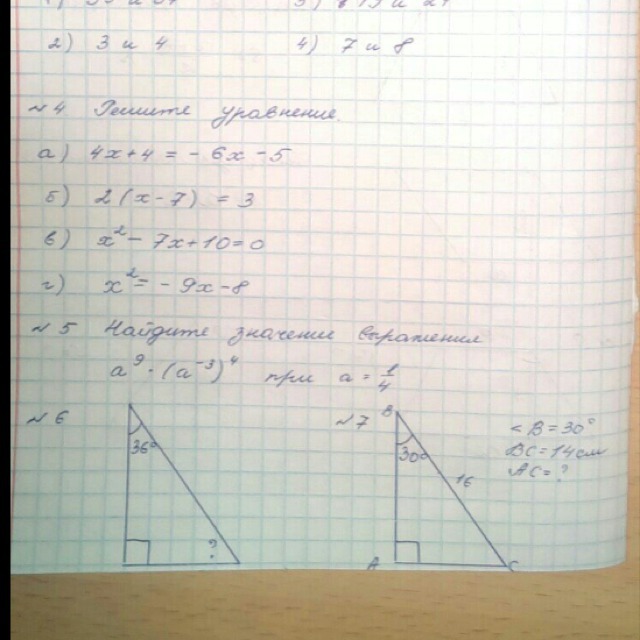 2) 3 и 4 4) 7 и 8
№4 Решите уравнение.
а) 4x+4 = -6x-5
б) 2(x-7) = 3
в) x² - 7x+10=0
г) x² = -9x-8
№5 Найдите значение выражения
a⁹ · (a⁻³)⁴ при a = 1/4
№6 36° ?
№7 B 30° 16 A C
<B=30°
BC=14см
AC=?